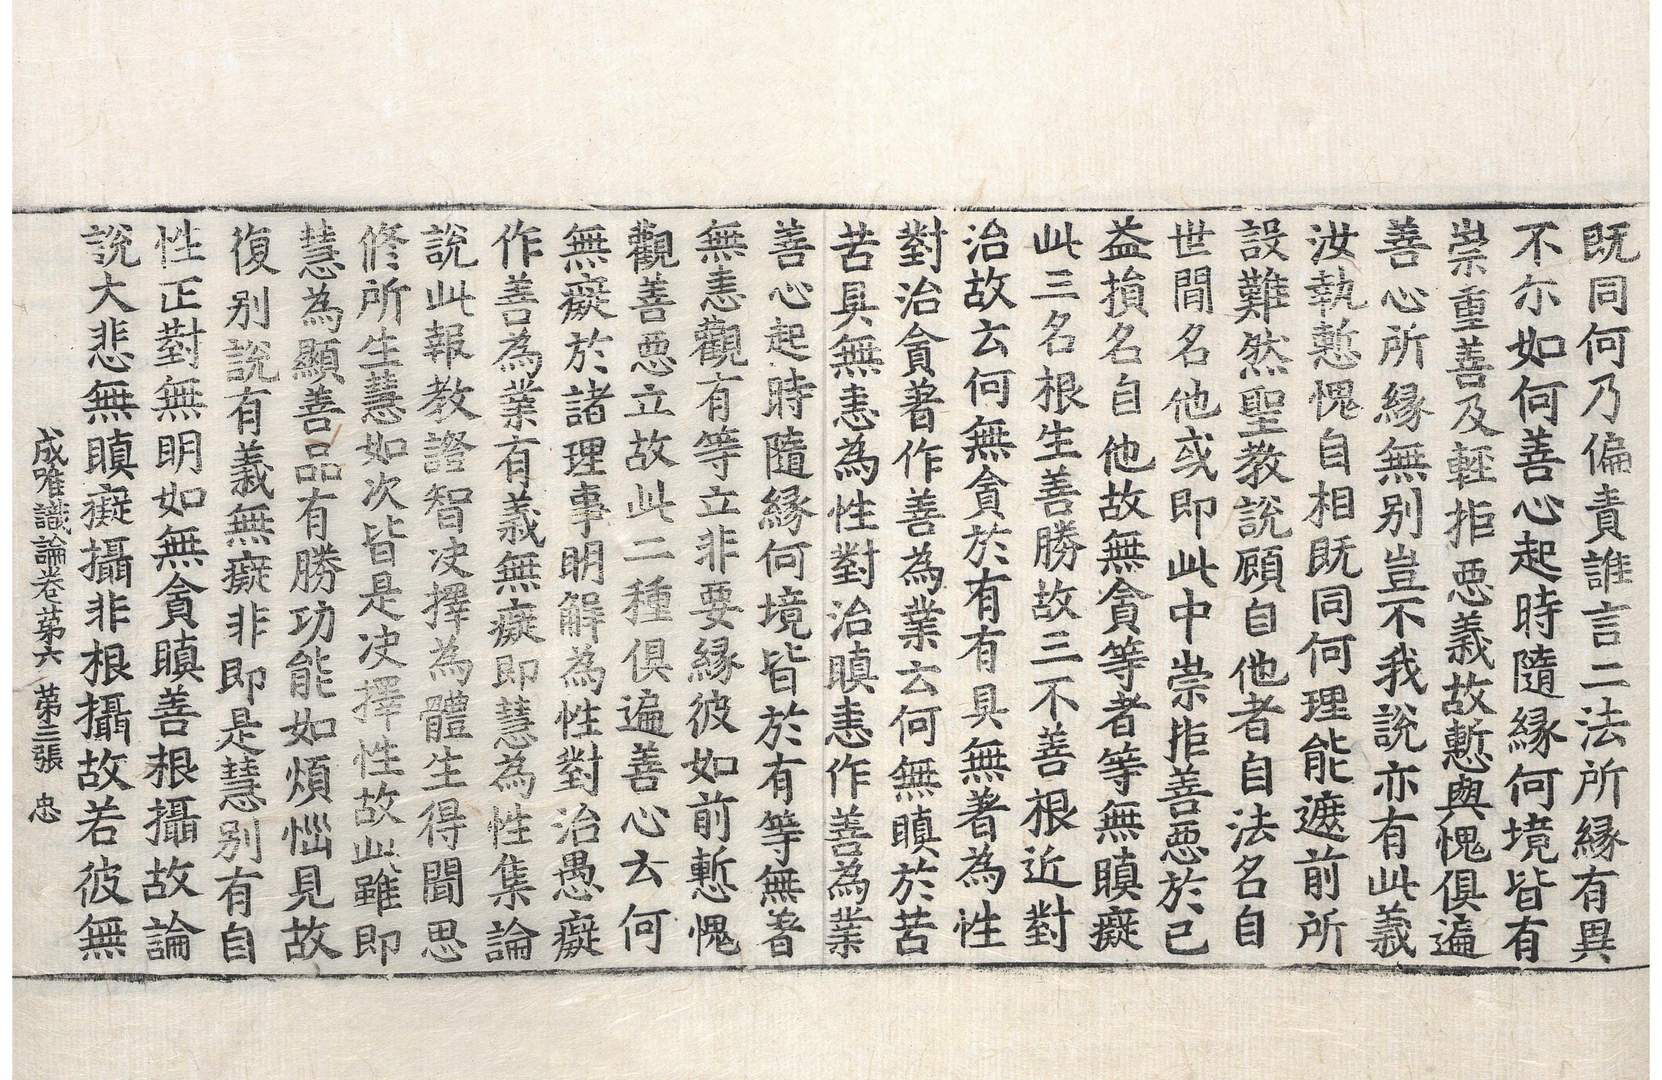 既同何乃偏責誰言二法所縁有異
不尓如何善心起時隨縁何境皆有
崇重善及輕拒惡義故慙與愧俱遍
善心所縁無別豈不我說亦有此義
汝執慙愧自相既同何理能遮前所
設難然聖教說顧自他者自法名自
世間名他或即此中崇拒善惡於己
益損名自他故無貪等者等無瞋癡
此三名根生善勝故三不善根近對
治故云何無貪於有有具無著為性
對治貪著作善為業云何無瞋於苦
苦具無恚為性對治瞋恚作善為業
善心起時隨縁何境皆於有等無著
無恚觀有等立非要縁彼如前慙愧
觀善惡立故此二種俱遍善心云何
無癡於諸理事明解為性對治愚癡
作善為業有義無癡即慧為性集論
說此報教證智决擇為體生得聞思
修所生慧如次皆是决擇性故此雖即
慧為顯善品有勝功能如煩惱見故
復别說有義無癡非即是慧别有自
性正對無明如無貪瞋善根攝故論
說大悲無瞋癡攝非根攝故若彼無
成唯識論卷苐六 苐三張 忠